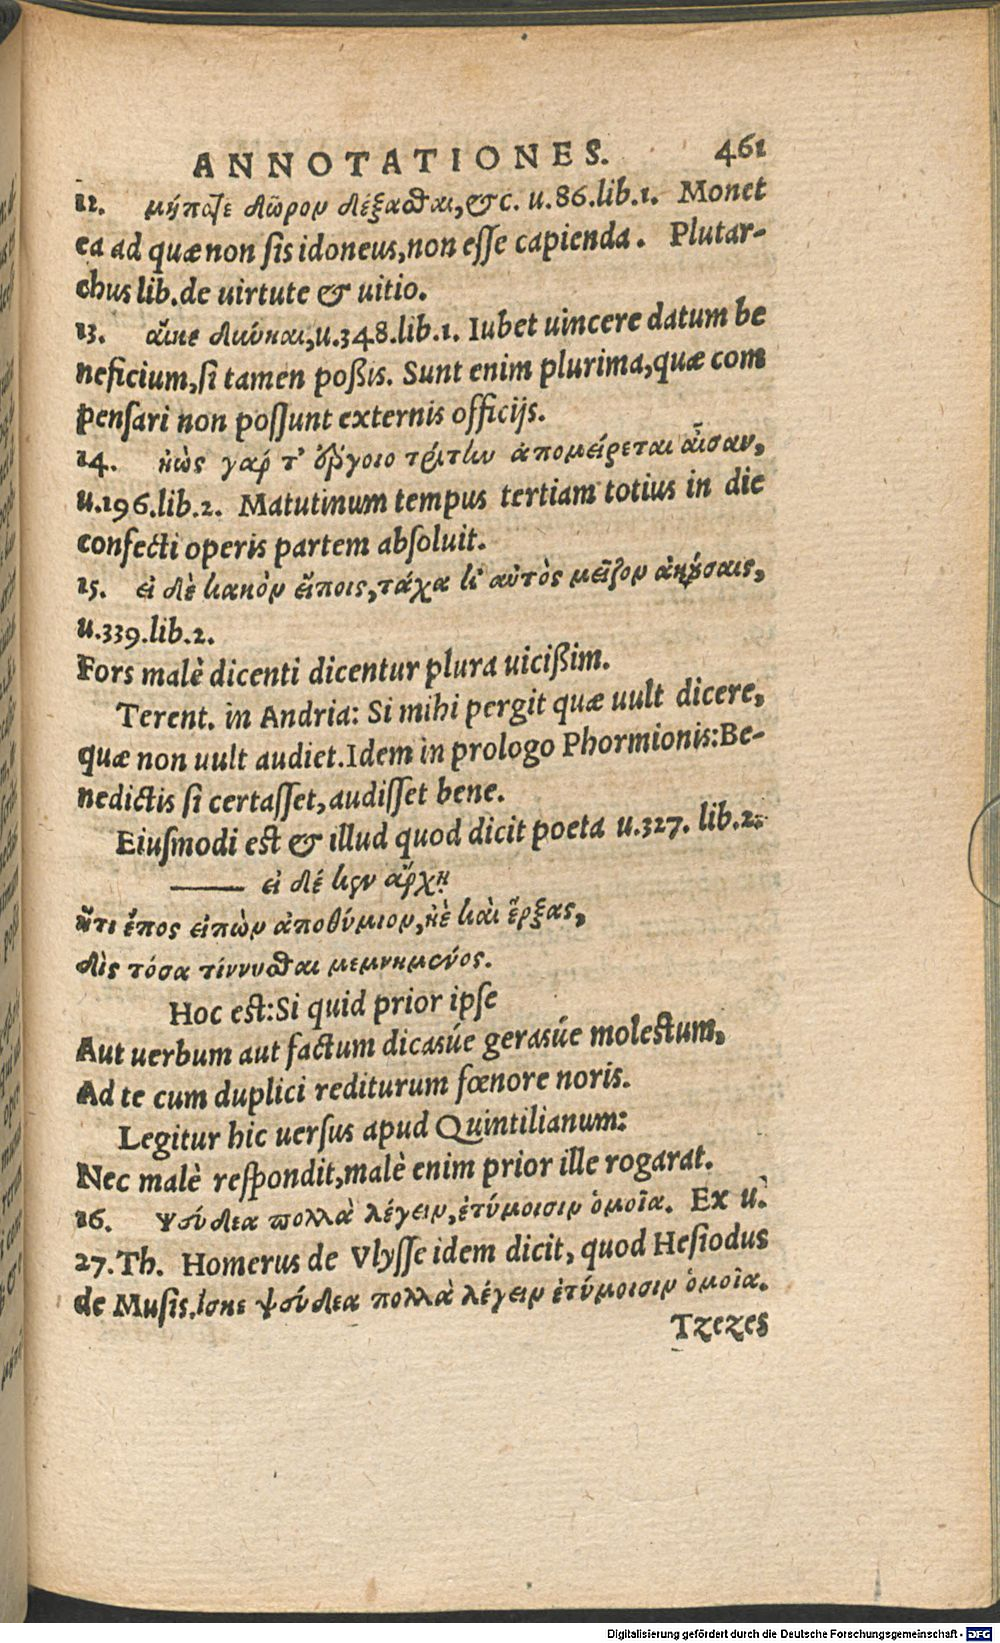 ANNOTATIONES. 461
12. μήποτε δῶρον δέξασθαι, &c. u.86.lib.1. Monet
ea ad quæ non ſis idoneus, non eſſe capienda. Plutar-
chus lib. de uirtute & uitio.
13. αἴκε δύνηαι, u.348.lib.1. Iubet uincere datum be
neficium, ſi tamen poßis. Sunt enim plurima, quæ com
penſari non poſſunt externis officijs.
14. ἠὼς γαρ τ' ἔργοιο τρίτην ἀπομείρεται αἶσαν,
u.196.lib.2. Matutinum tempus tertiam totius in die
confecti operis partem abſoluit.
15. εἰ δὲ κακὸν εἴποις, τάχα κ' αὐτὸς μεῖζον ἀκούσαις,
u.339.lib.2.
Fors malè dicenti dicentur plura uicißim.
Terent. in Andria: Si mihi pergit quæ uult dicere,
quæ non uult audiet. Idem in prologo Phormionis: Be-
nedictis ſi certaſſet, audiſſet bene.
Eiuſmodi eſt & illud quod dicit poeta u.327. lib.2.
—— εἰ δέ κεν ἄρχῃ
ἤτι ἔπος εἰπὼν ἀποθύμιον, ἠὲ καὶ ἔρξας,
δὶς τόσα τίννυσθαι μεμνημένος.
Hoc eſt: Si quid prior ipſe
Aut uerbum aut factum dicasúe gerasúe moleſtum,
Ad te cum duplici rediturum fœnore noris.
Legitur hic uerſus apud Quintilianum:
Nec malè reſpondit, malè enim prior ille rogarat.
16. Ψεύδεα πολλὰ λέγειν, ἐτύμοισιν ὁμοῖα. Ex u.
27. Th. Homerus de Vlyſſe idem dicit, quod Heſiodus
de Muſis. ἴσκε ψεύδεα πολλὰ λέγειν ἐτύμοισιν ὁμοῖα.
Tzezes
Digitalisierung gefördert durch die Deutsche Forschungsgemeinschaft - DFG